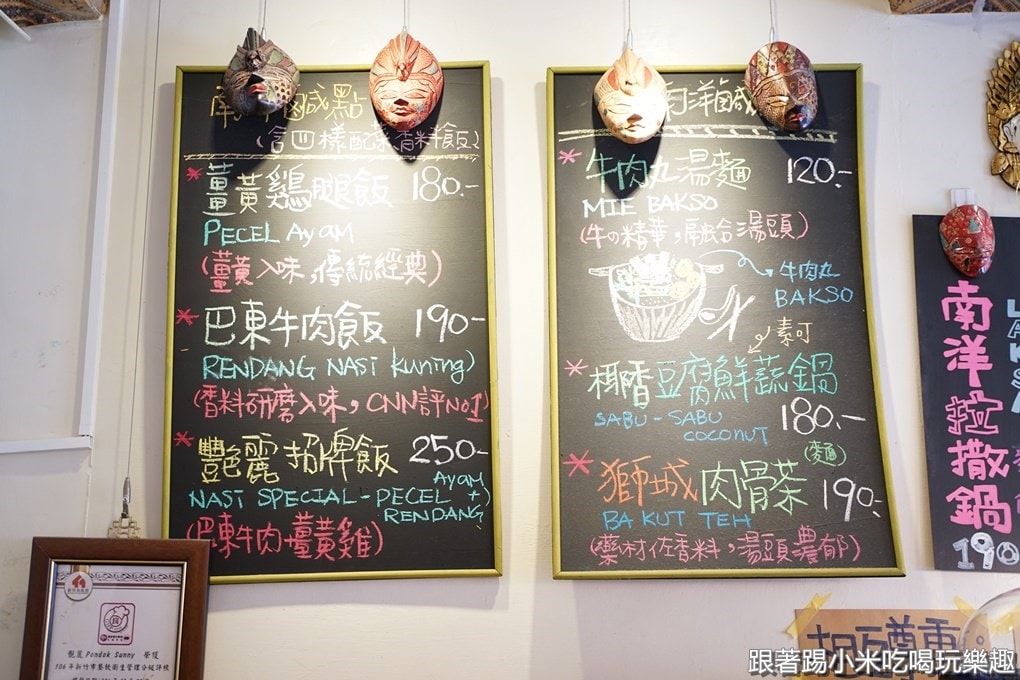 南洋鹹點
(含四樣配菜香料飯)
*薑黃鷄腿飯 180.-
PECEL AyAM
(薑黃入味,傳統經典)
*巴東牛肉飯 190-
RENDANG NASi kuning)
(香料研磨入味,CNN評No.1)
*艷麗招牌飯 250-
NASI SPECIAL-PECEL AyAM +)
RENDANG
(巴東牛肉+薑黃雞)
南洋鹹
*牛肉丸湯麵 120.-
MIE BAKSO
(牛の精華,融合湯頭)
牛肉丸
BAKSO
素可
*椰香豆腐鮮蔬鍋
SABU-SABU
COCONUT 180.-
*獅城肉骨茶(麵) 190.-
BA KUT TEH
(藥材佐香料,湯頭濃郁)
南洋拉撒鍋
190
艷麗Pondok Sunny 榮獲
106年新竹市餐飲衛生管理分級評核
跟著踢小米吃喝玩樂趣